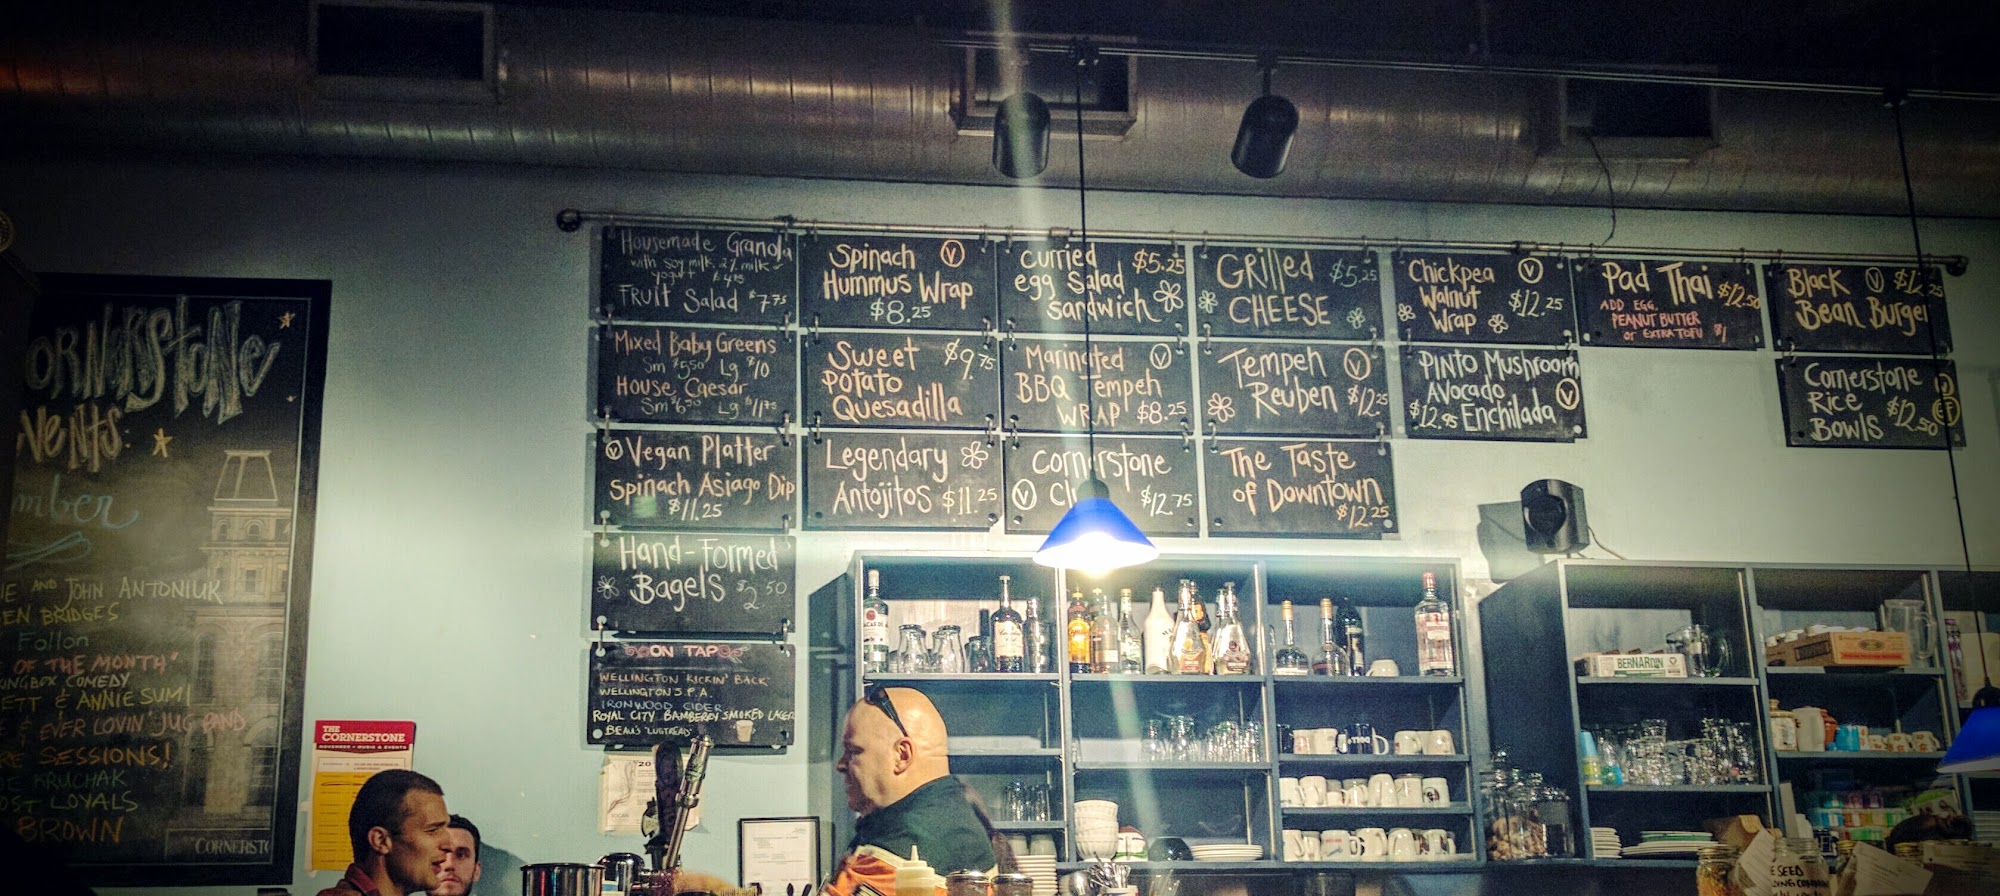 Housemade Granola
with soy milk, 2% milk
yogurt $4.95
Fruit Salad $7.75
Mixed Baby Greens
Sm $5.50 Lg $10
House Caesar
Sm $6.50 Lg $11.75
V Vegan Platter
Spinach Asiago Dip
$11.25
Hand-Formed
Bagels $2.50
ON TAP
WELLINGTON KICKIN' BACK
WELLINGTON S.P.A.
IRONWOOD CIDER
ROYAL CITY BAMBERDY SMOKED LAGER
BEAU'S "LUGTREAD"
Spinach V
Hummus Wrap
$8.25
Sweet $9.75
Potato
Quesadilla
Legendary
Antojitos $11.25
Curried $5.25
egg Salad
sandwich
Marinated V
BBQ Tempeh
WRAP $8.25
Cornerstone
V $12.75
GRilled $5.25
CHEESE
Tempeh V
Reuben $12.25
The Taste
of Downtown
$12.25
Chickpea V
Walnut $12.25
Wrap
PINTO Mushroom
Avocado V
$12.95 Enchilada
Pad Thai $12.50
ADD EGG,
PEANUT BUTTER
or EXTRA TOFU $1
Black V
Bean Burger
Cornerstone
Rice
Bowls $12.50
ORNERSTONE
VENTS:
mber
IE AND JOHN ANTONIUK
EN BRIDGES
Follon
OF THE MONTH"
INGBOX COMEDY
ETT & ANNIE SUMI
& EVER LOVIN JUG BAND
RE SESSIONS!
IE KRUCHAK
OST LOYALS
BROWN
CORNERSTO
THE
CORNERSTONE
NOVEMBER • MUSIC & EVENTS
BERNARDIN